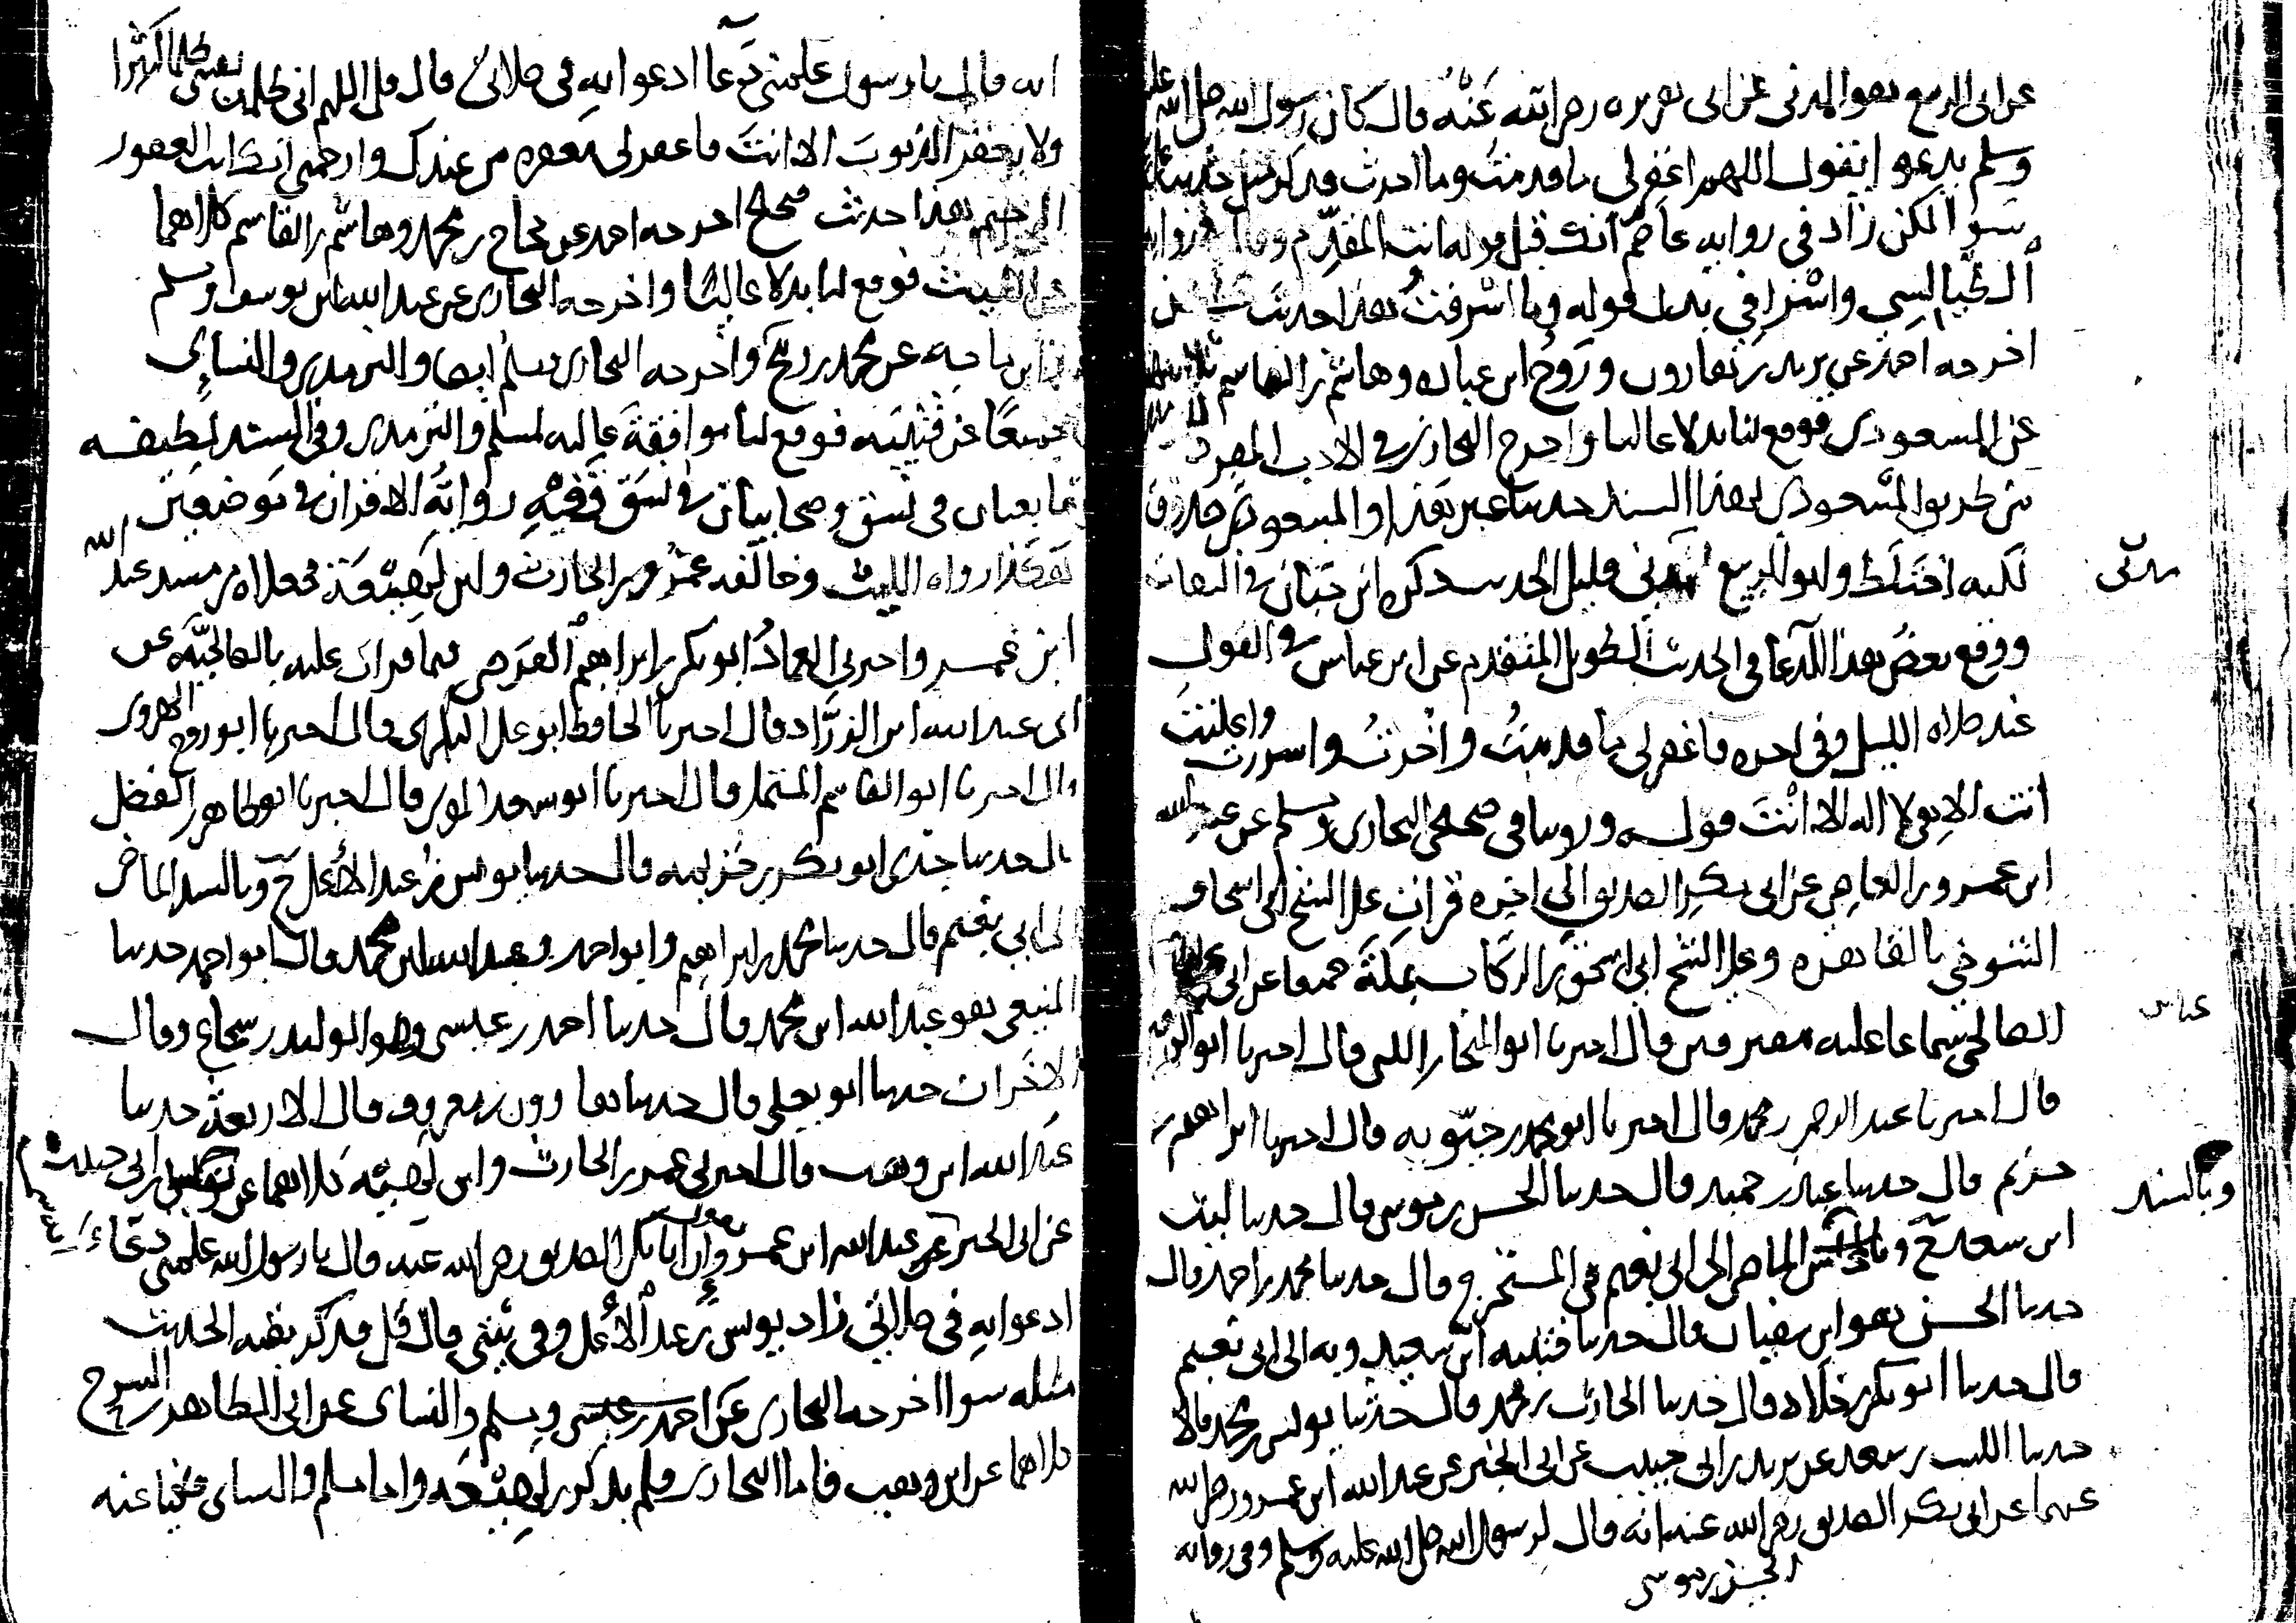 عن ابي الربيع هو المدني عن ابي هريره رضي الله عنه قال كان رسول الله صلى الله عليه
وسلم يدعو يقول اللهم اغفر لي ما قدمت وما اخرت فذكر مثل حديث
سوا لكن زاد في روايه عاصم انك قبل قوله انت المقدم وقال في روايه
الطيالسي واسرافي بدل قوله وما اسرفت هذا حديث حسن
اخرجه احمد عن يزيد بن هارون وروح ابن عباده وهاشم بن القاسم ثلاثتهم
عن المسعودي فوقع لنا بدلا عاليا واخرج البخاري في الادب المفرد
من طريق المسعودي بهذا السند حديثا غير هذا والمسعودي صدوق
لكنه اختلط وابو الربيع مدني قليل الحديث ذكره ابن حبان في الثقات
مدني
ووقع بعض هذا الدعا في الحديث الطويل المتقدم عن ابن عباس في القول
عند صلاه الليل وفي اخره فاغفر لي ما قدمت واخرت واسررت واعلنت
انت الاهي لا اله الا انت قوله وروينا في صحيحي البخاري ومسلم عن عبد الله
ابن عمرو بن العاص عن ابي بكر الصديق الى اخره قرات على الشيخ ابي اسحاق
التنوخي بالقاهره وعلى الشيخ ابي اسحق بن الرسام بمكة جميعا عن ابي العباس
عباس
الصالحي سماعا عليه مفترقين قال اخبرنا ابو المنجا بن اللتي قال اخبرنا ابو الوقت
قال اخبرنا عبد الرحمن بن محمد قال اخبرنا ابو محمد بن حمويه قال اخبرنا ابراهيم بن
خزيم قال حدثنا عبد بن حميد قال حدثنا الحسن بن موسى قال حدثنا ليث
ابن سعد ح وبالسند الماضي الى ابي نعيم في المستخرج قال حدثنا محمد بن احمد قال
وبالسند
حدثنا الحسن هو ابن سفيان قال حدثنا قتيبه ابن سعيد وبه الى ابي نعيم
قال حدثنا ابو بكر بن خلاد قال حدثنا الحارث بن محمد قال حدثنا يونس بن محمد قالا
حدثنا الليث بن سعد عن يزيد بن ابي حبيب عن ابي الخير عن عبد الله ابن عمرو رضي الله
عنهما عن ابي بكر الصديق رضي الله عنه انه قال لرسول الله صلى الله عليه وسلم وفي روايه
الحسن بن موسى
انه قال يا رسول علمني دعآا ادعوا به في صلاتي قال قل اللهم اني ظلمت نفسي ظلما كثيرا
ولا يغفر الذنوب الا انت فاغفر لي مغفره من عندك وارحمني انك انت الغفور
الرحيم هذا حديث صحيح اخرجه احمد عن حجاج بن محمد وهاشم بن القاسم كلاهما
عن الليث فوقع لنا بدلا عاليا واخرجه البخاري عن عبد الله ابن يوسف ومسلم
وابن ماجه عن محمد بن رمح واخرجه البخاري ومسلم ايضا والترمذي والنساي
جميعا عن قتيبه فوقع لنا موافقة عاليه لمسلم والترمذي وفي السند لطيفه
تابعيان في نسق وصحابيان في نسق ففيه رواية الاقران في موضعين
هكذا رواه الليث وخالفه عمرو بن الحارث وابن لهيعة فجعلاه من مسند عبد الله
ابن عمرو اخبرني العماد ابو بكر بن ابراهيم الفرضي فيما قرات عليه بالصالحيه عن
ابي عبد الله ابن الزراد قال اخبرنا الحافظ ابو علي البكري قال اخبرنا ابو روح الهروي
قال اخبرنا ابو القاسم المستملي قال اخبرنا ابو سعد المقري قال اخبرنا ابو طاهر بن الفضل
قال حدثنا جدي ابو بكر بن خزيمه قال حدثنا يونس بن عبد الاعلى ح وبالسند الماضي
الى ابي نعيم قال حدثنا محمد بن ابراهيم وابو احمد وعبد الله ابن محمد قال ابو احمد حدثنا
المنيعي هو عبد الله ابن محمد قال حدثنا احمد بن عيسى وهو الوليد بن شجاع وقال
الاخران حدثنا ابو يعلى قال حدثنا هارون بن معروف قال الاربعة حدثنا
عبد الله ابن وهب قال اخبرني عمرو بن الحارث وابن لهيعه كلاهما عن يزيد بن ابي حبيب
عن ابي الخير عن عبد الله ابن عمرو يقول ان ابا بكر الصديق رضي الله عنه قال يا رسول الله علمني دعاء
ادعوا به في صلاتي زاد يونس بن عبد الاعلى وفي بيتي قال قل فذكر بقيه الحديث
مثله سوا اخرجه البخاري عن احمد بن عيسى ومسلم والنساي عن ابي الطاهر بن السرح
كلاهما عن ابن وهب فاما البخاري فلم يذكر بن لهيعه واما مسلم والنساي فكنيا عنه